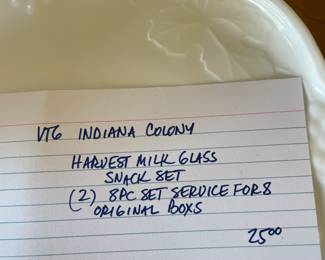 VTG INDIANA COLONY
HARVEST MILK GLASS
SNACK SET
(2) 8PC SET SERVICE FOR 8
ORIGINAL BOXS
25⁰⁰